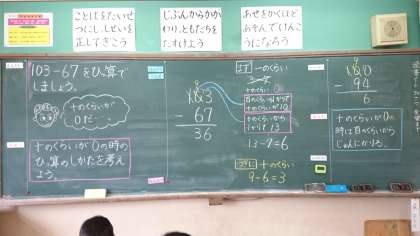 ことばをたいせ
つにし、しせいを
正してきこう
じぶんからかか
わり、ともだちを
たすけよう
あせをかくほど
あそんでけんこ
うになろう
103-67をひ算で
しましょう。
十のくらいが
0だ…
十のくらいが0の時の
ひ算のしかたを考え
よう。
103
- 67
36
まず 一のくらい
十のくらい
百のくらいから1かりて
十のくらいが10
十のくらいから
1かりて13
13-7=6
つぎに 十のくらい
9-6=3
100
- 94
6
十のくらいが0の
時は百のくらいから
じゅんにかりる。